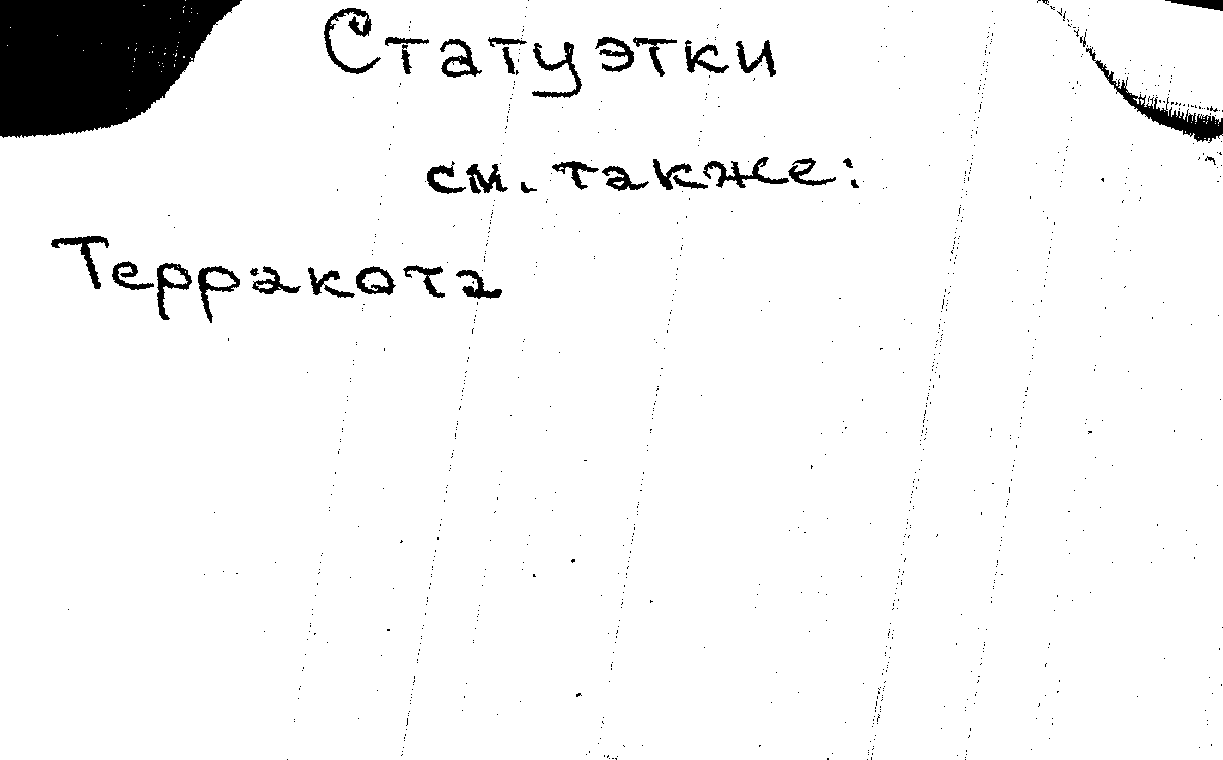 Статуэтки
см. также:
Терракота